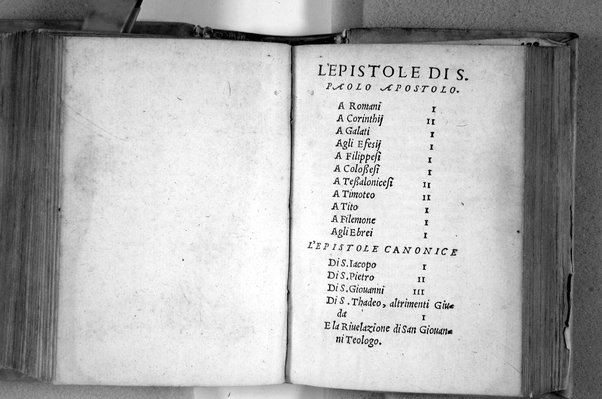 L'EPISTOLE DI S.
PAOLO APOSTOLO.
A Romani I
A Corinthij II
A Galati I
Agli Efesij I
A Filippesi I
A Coloßesi I
A Teßalonicesi II
A Timoteo II
A Tito I
A Filemone I
Agli Ebrei I
L'EPISTOLE CANONICE
Di S. Iacopo I
Di S. Pietro II
Di S. Giouanni III
Di S. Thadeo, altrimenti Giu-
da I
E la Riuelazione di San Giouan-
ni Teologo.